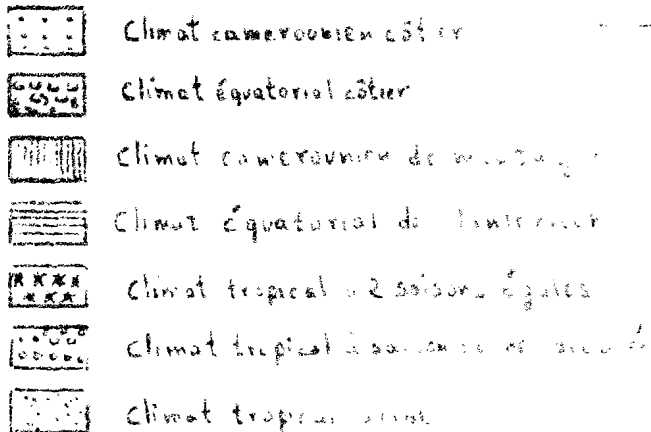 Climat camerounien côtier
Climat équatorial côtier
Climat camerounien de
Climat équatorial de l'intérieur
Climat tropical à 2 saisons égales
Climat tropical à
Climat tropical